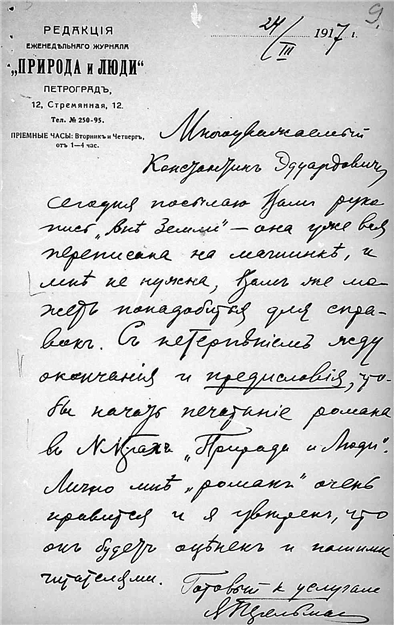 9.
РЕДАКЦІЯ
ЕЖЕНЕДѢЛЬНАГО ЖУРНАЛА
„ПРИРОДА и ЛЮДИ“
ПЕТРОГРАДЪ,
12, Стремянная, 12.
Тел. № 250-95.
ПРІЕМНЫЕ ЧАСЫ: Вторникъ и Четвергъ,
отъ 1—4 час.
24/III 1917 г.
Многоуважаемый
Константинъ Эдуардовичъ,
сегодня посылаю Вамъ руко
пись „Внѣ Земли“ — она уже вся
переписана на машинкѣ, и
мнѣ не нужна, Вамъ же мо-
жетъ понадобиться для спра-
вокъ. Съ нетерпѣніемъ жду
окончанія и предисловія, что-
бы начать печатаніе романа
въ №№ахъ „Природы и Люди“.
Лично мнѣ „романъ“ очень
нравится и я увѣренъ, что
онъ будетъ оцѣненъ и нашими
читателями.
Готовый к услугамъ
Я Перельман